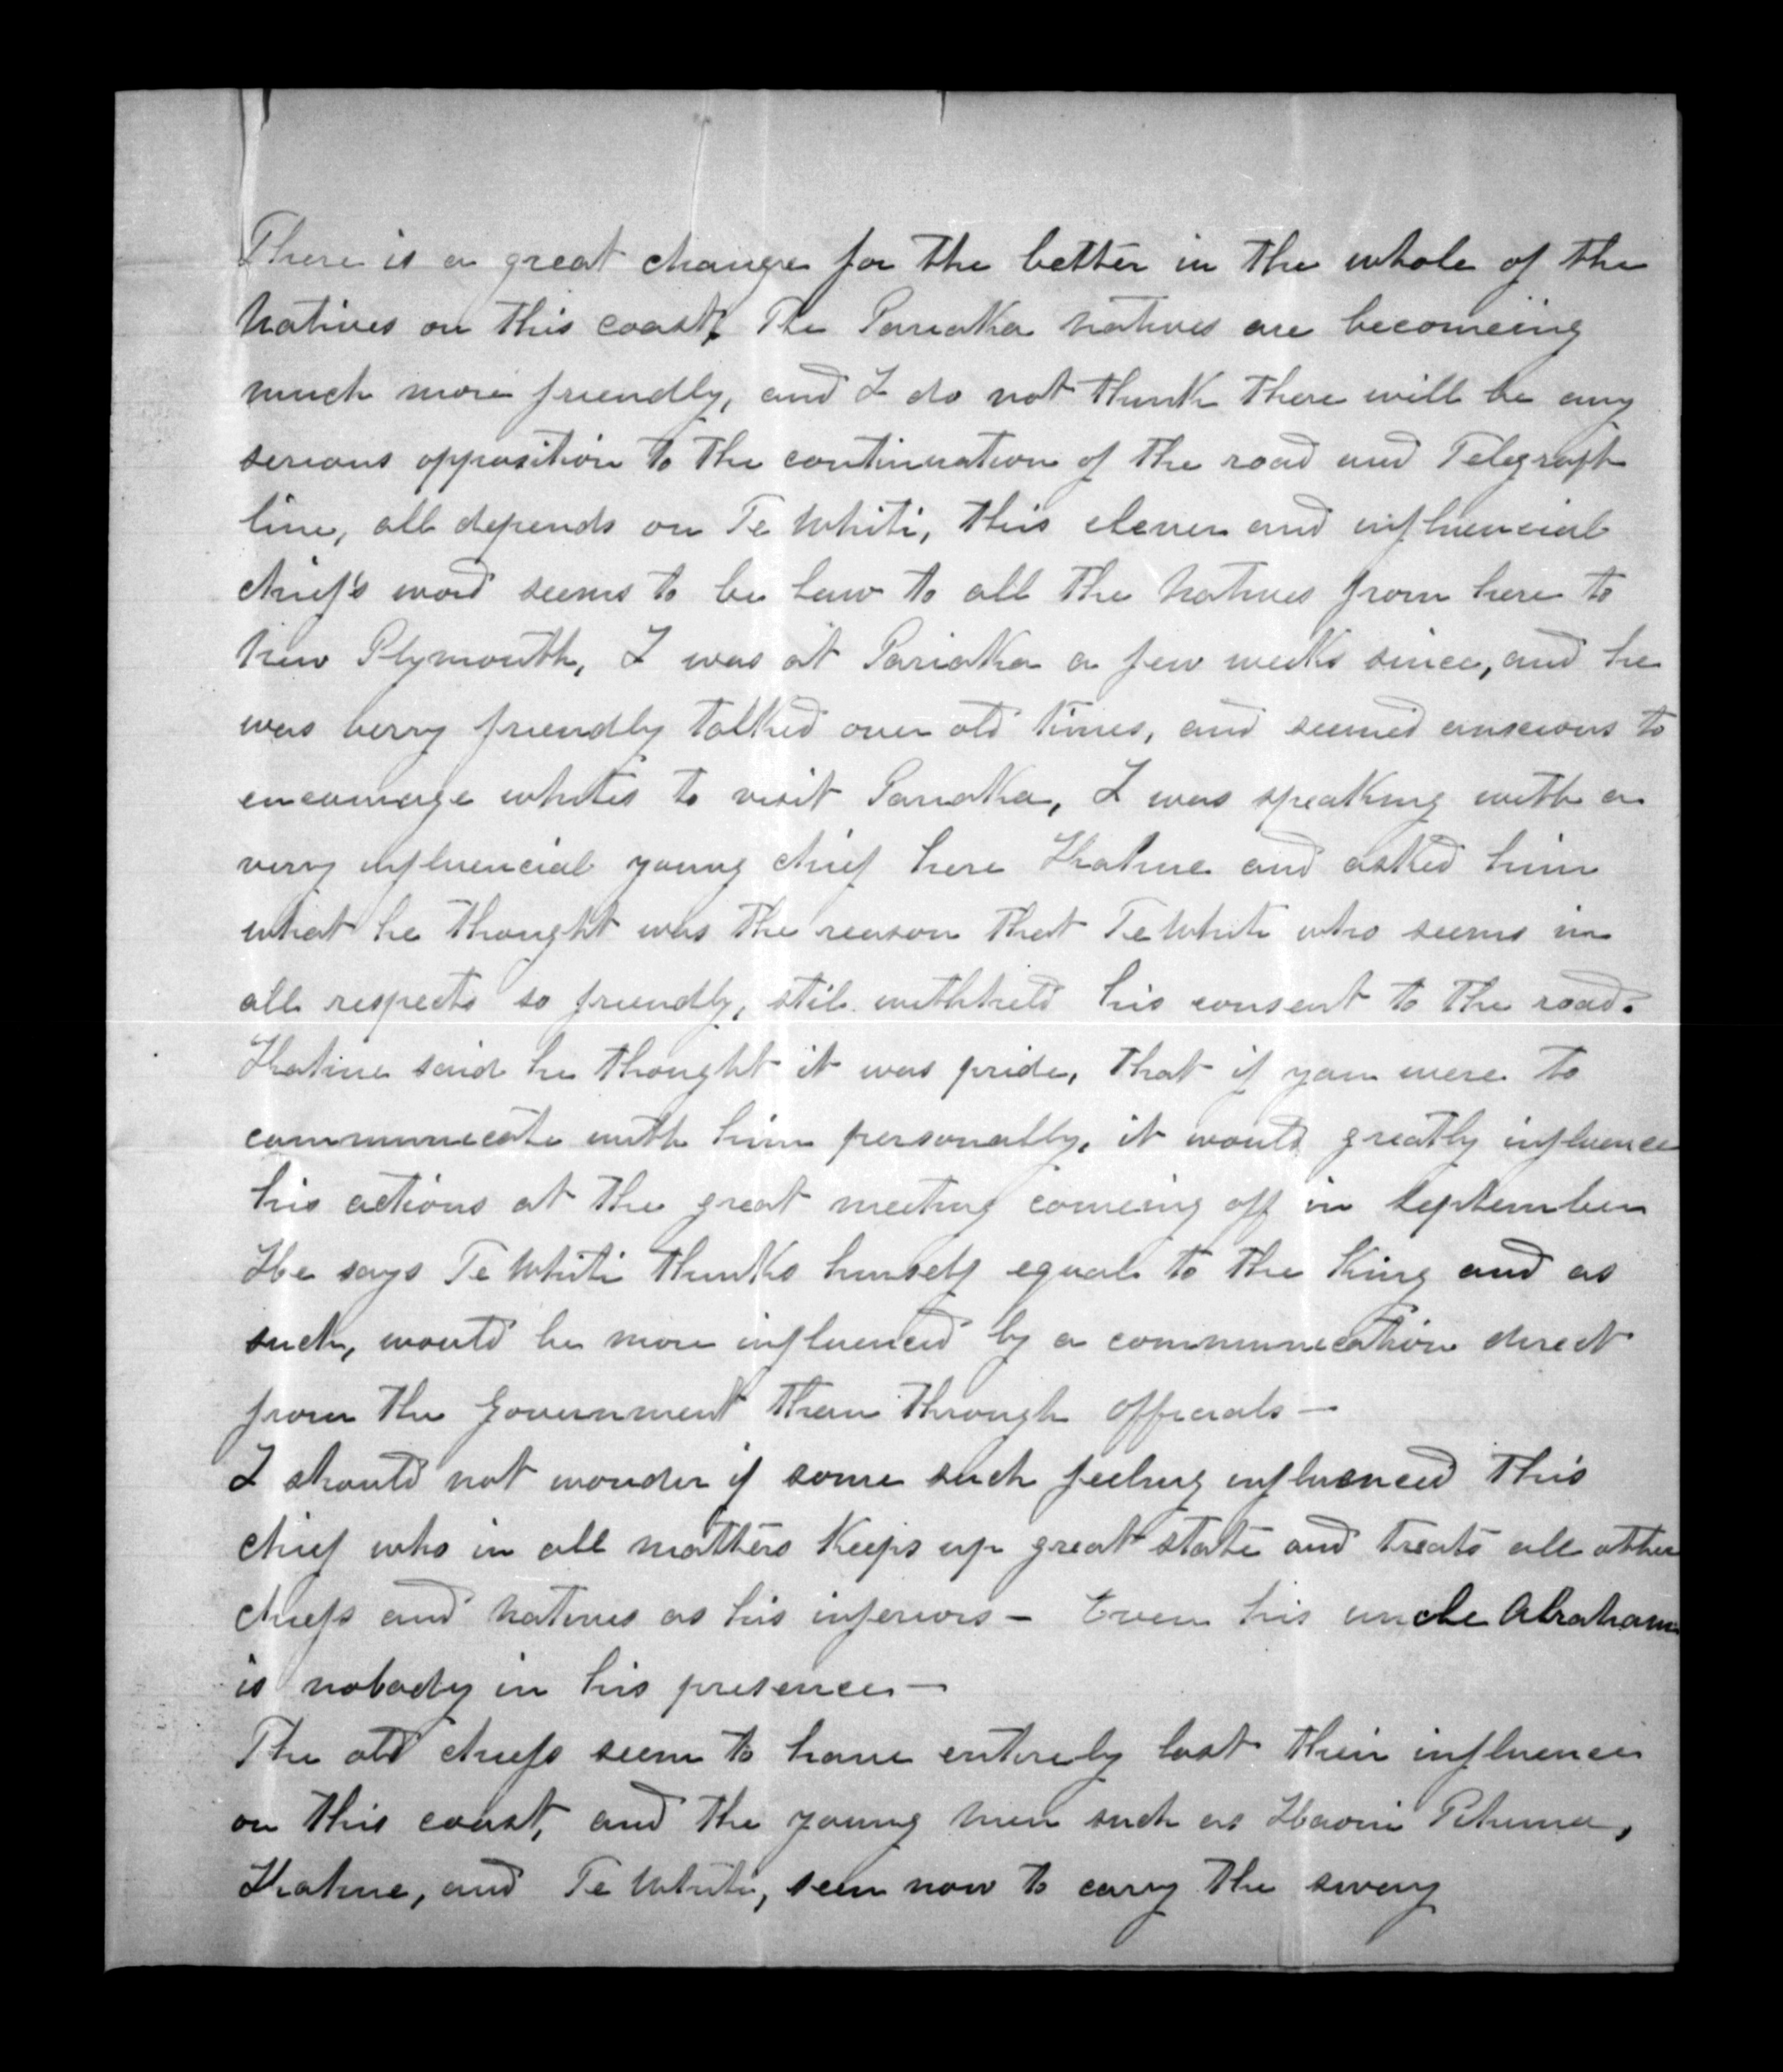 There is a great change for the better in the whole of the
Natives on this coast, The Pariaka Natives are becomeing
much more friendly, and I do not think there will be any
serious opposition to the continuation of the road and Telegraph
line, all depends on Te Whiti, this clever and influencial
chief's word seems to be law to all the Natives from here to
New Plymouth, I was at Pariaka a few weeks since, and he
was verry friendly talked over old times, and seemed anxcious to
encourage whites to visit Pariaka, I was speaking with a
very influencial young chief here Katine and asked him
what he thought was the reason that Te Whiti who seems in
all respects so friendly, stil withheld his consent to the road.
Katine said he thought it was pride, that if you were to
communecate with him personally, it would greatly influence
his actions at the great meeting comeing off in September
He says Te Whiti thinks himself equal to the King and as
such, would be more influenced by a communecation direct
from the Government than through officials —
I should not wonder if some such feeling influenced this
chief who in all matters keeps up great state and treats all other
chiefs and Natives as his inferiors — Even his uncle Abraham
is nobody in his presence —
The old chiefs seem to have entirely lost their influence
on this coast, and the young men such as Hone Pihama,
Katine, and Te Whiti, seem now to carry the sway